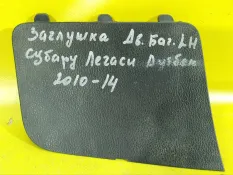 Заглушка Дв. Баг. LH
Субару Легаси Аутбек
2010-14